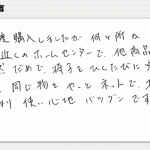 度購入しましたが 何ヶ所か
近くのホームセンターで、他商品
だめで、椅子をひくたびに
同じ物をやっとネットで
使い心地 バツグンです